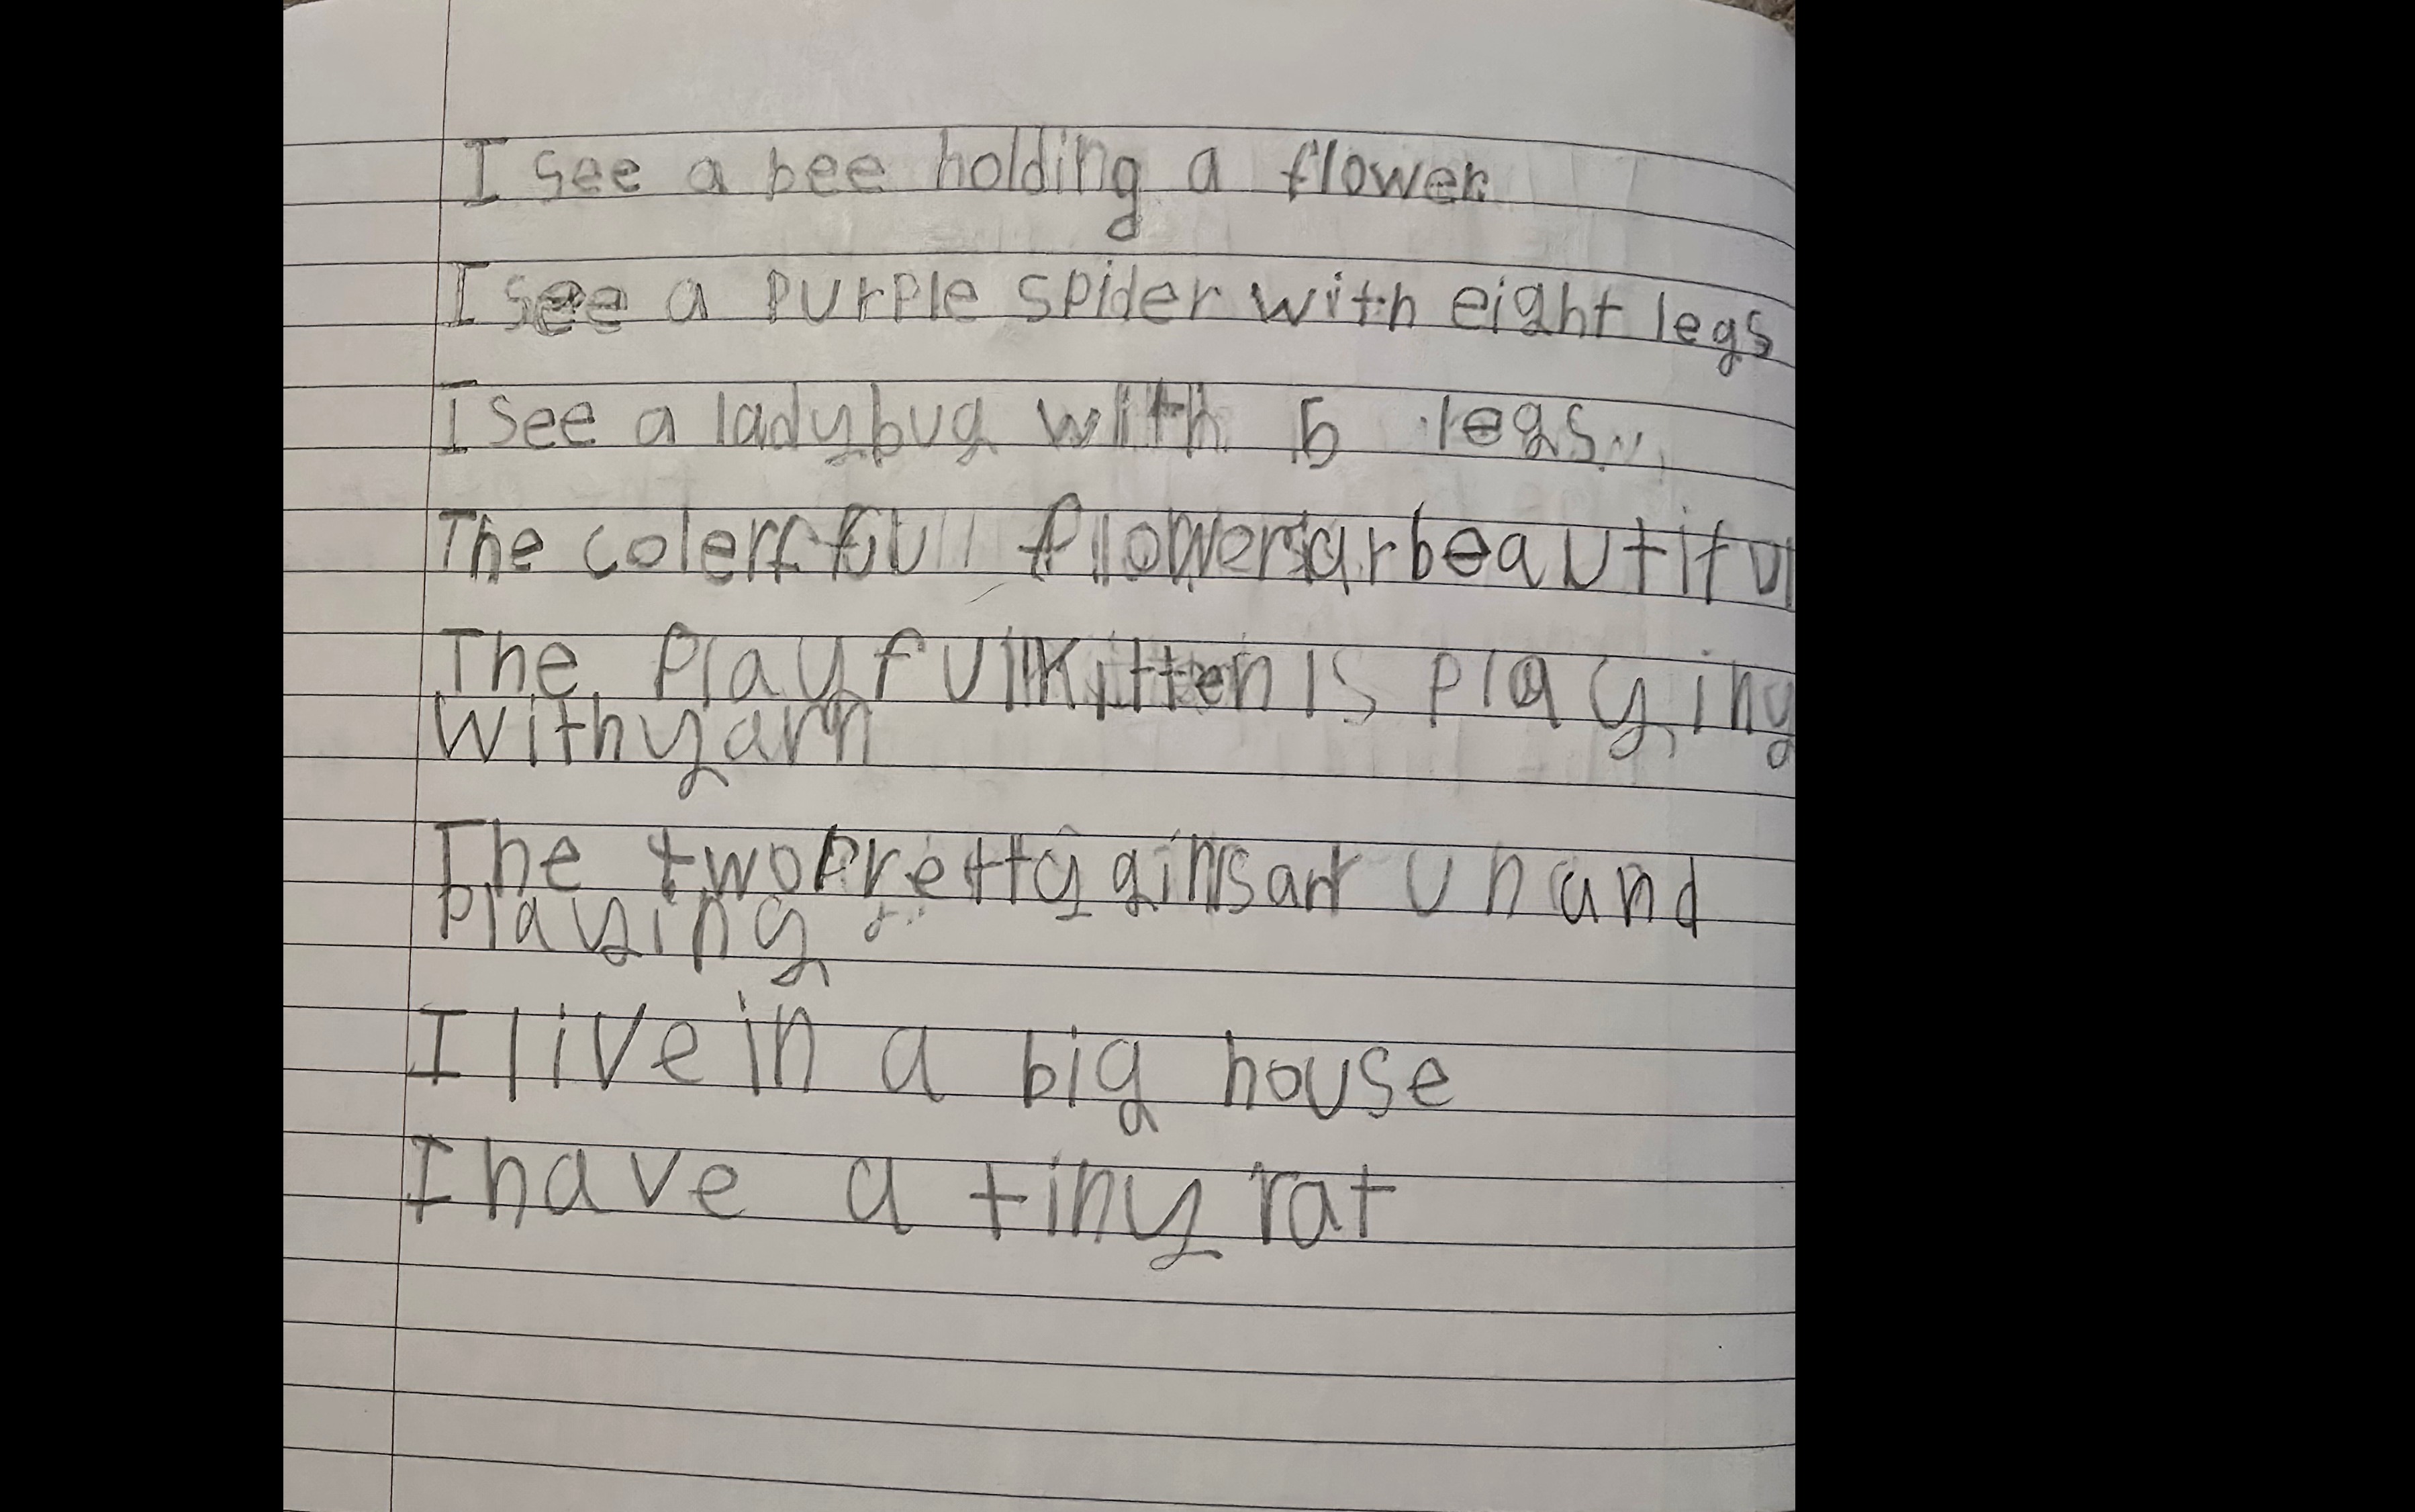 I see a bee holding a flower
I see a purple spider with eight legs
I see a ladybug with 6 legs.
The colerfull flowers ar beautiful
The Playfull Kitten is playing
with yarn
The two pretty girls ar un and
playing
I live in a big house
I have a tiny rat